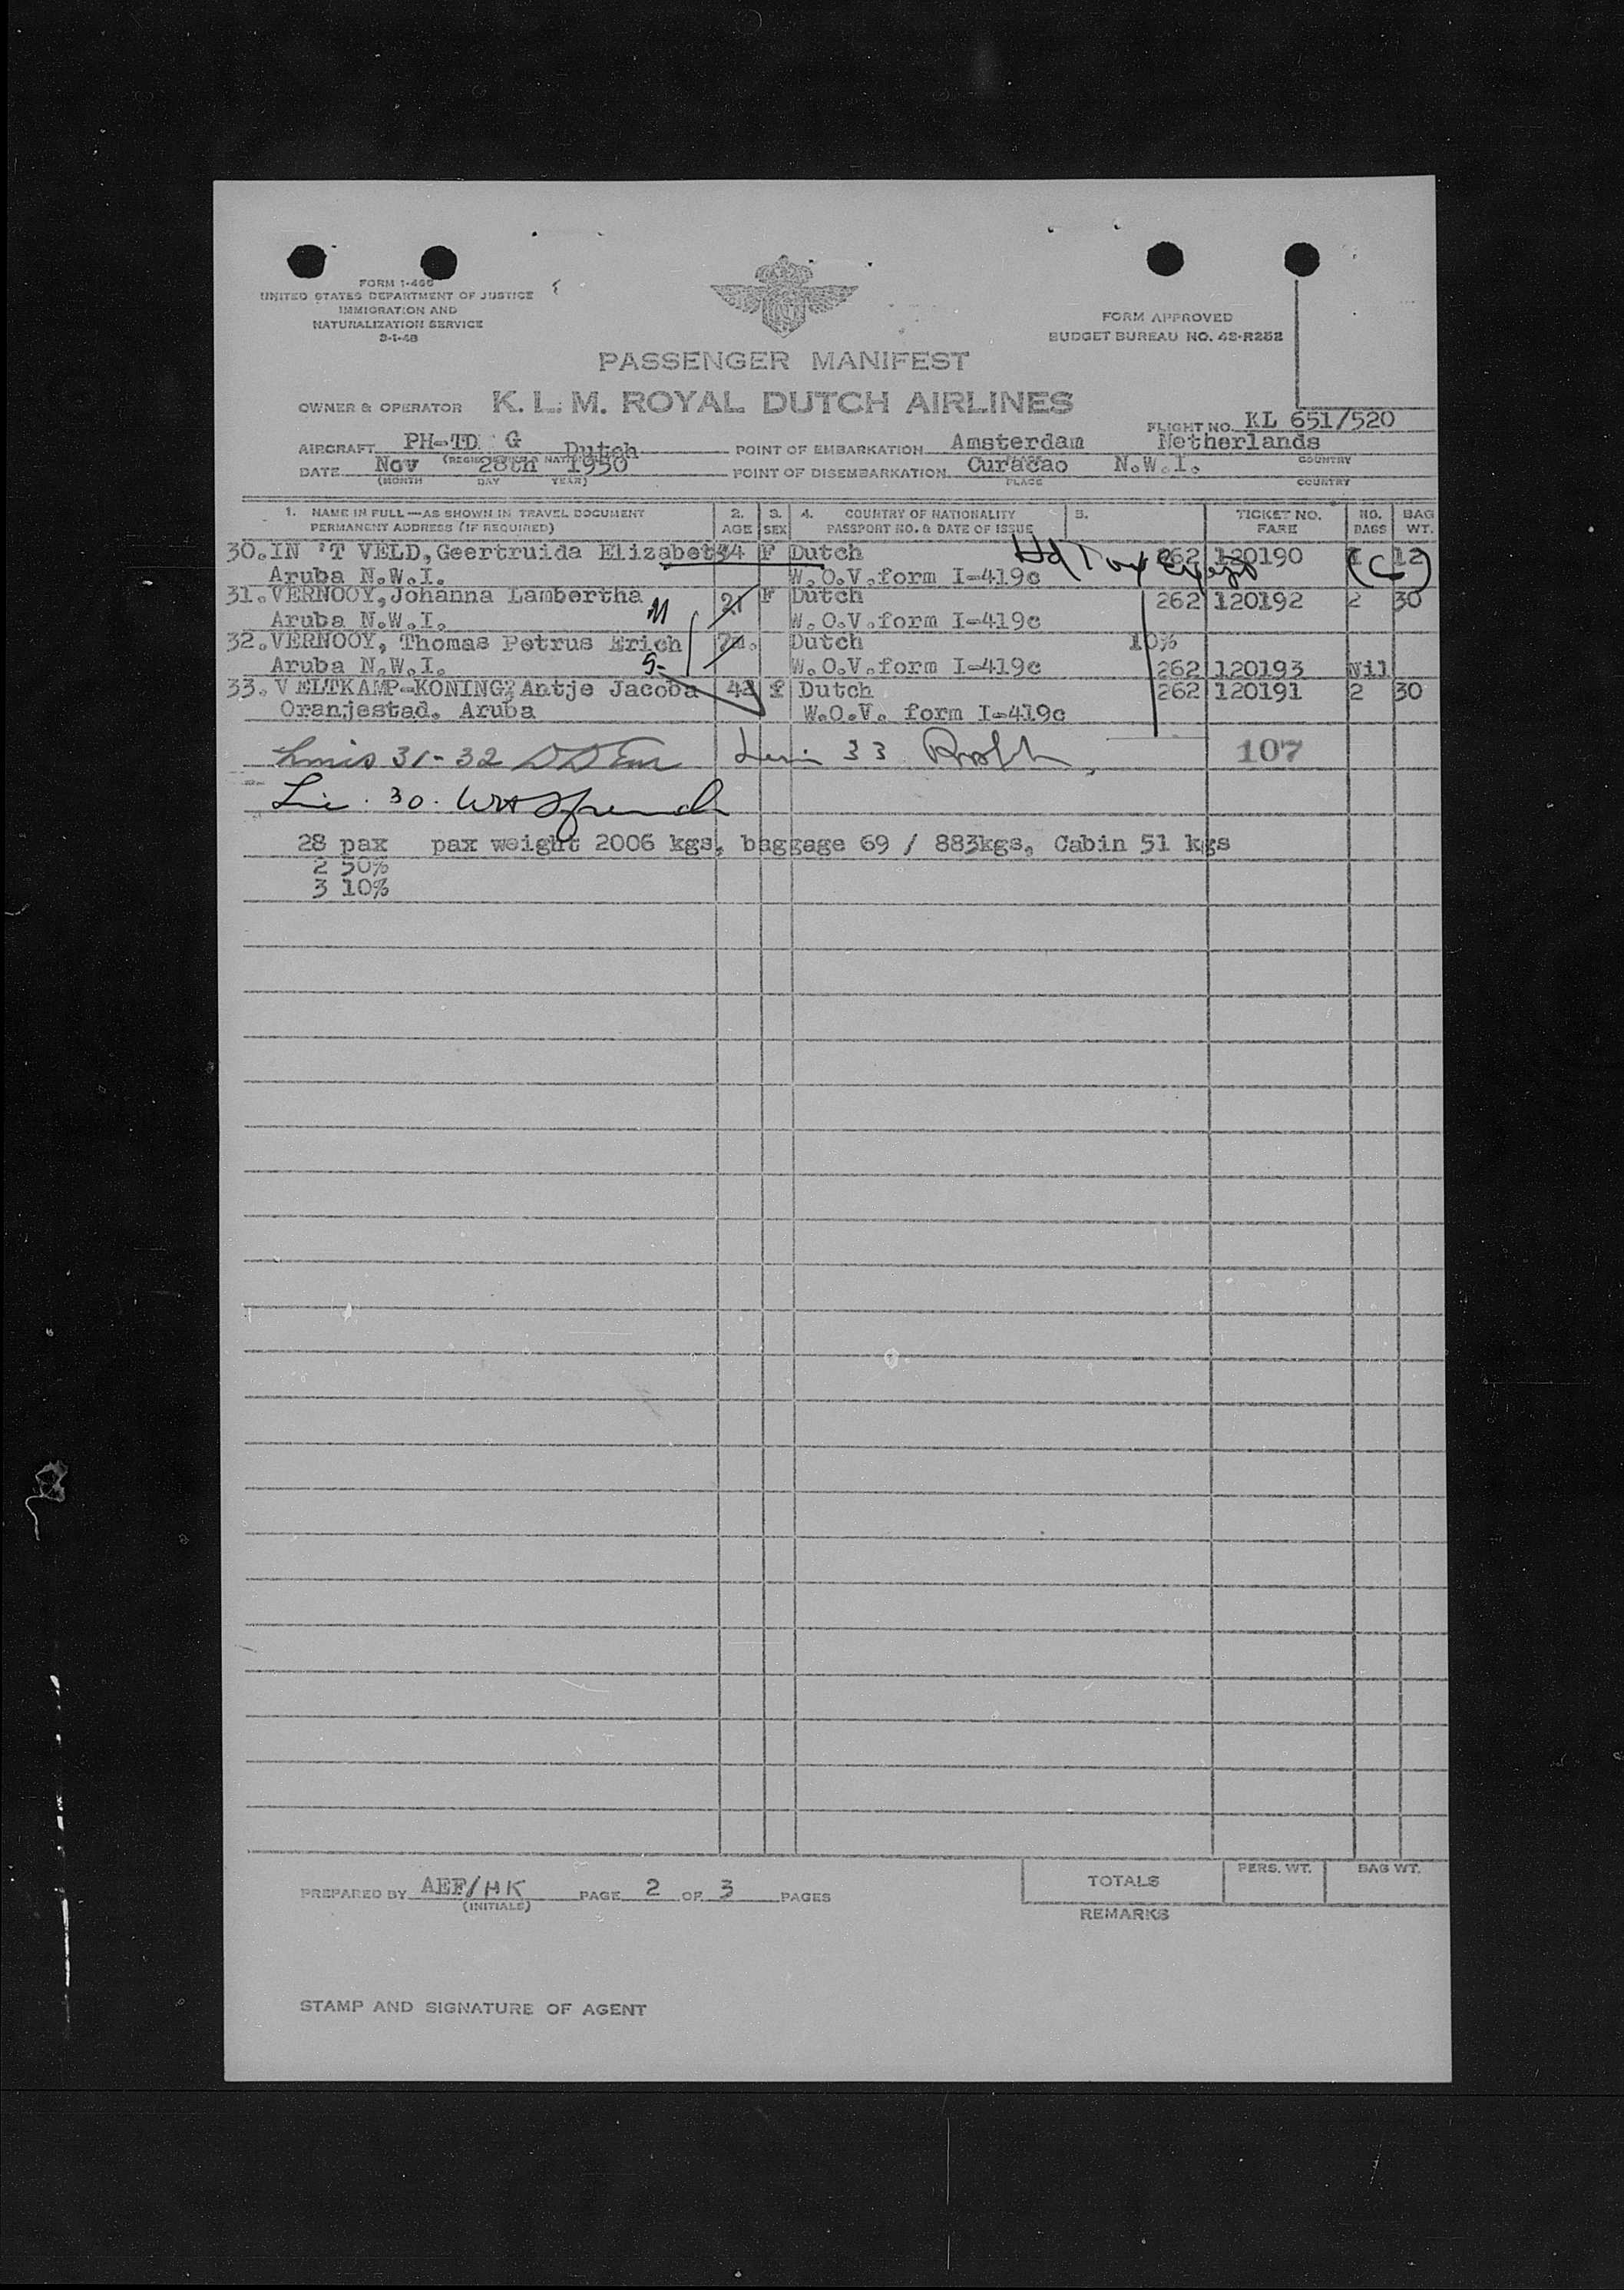 FORM I-466
UNITED STATES DEPARTMENT OF JUSTICE
IMMIGRATION AND
NATURALIZATION SERVICE
3-1-48
FORM APPROVED
BUDGET BUREAU NO. 43-R252
PASSENGER MANIFEST
OWNER & OPERATOR K. L. M. ROYAL DUTCH AIRLINES
FLIGHT NO. KL 651/520
AIRCRAFT PH-TD G Dutch POINT OF EMBARKATION Amsterdam Netherlands
COUNTRY
DATE Nov 28th 1950 POINT OF DISEMBARKATION Curacao N.W.I.
(MONTH DAY YEAR) PLACE COUNTRY
1. NAME IN FULL—AS SHOWN IN TRAVEL DOCUMENT 2. 3. 4. COUNTRY OF NATIONALITY 5. TICKET NO. NO. BAG
PERMANENT ADDRESS (IF REQUIRED) AGE SEX PASSPORT NO. & DATE OF ISSUE FARE BAGS WT.
30. IN 'T VELD, Geertruida Elizabet 34 F Dutch Hd Tax 262 120190 1 12
Aruba N.W.I. W.O.V. form I-419c (C)
31. VERNOOY, Johanna Lambertha 21 F Dutch 262 120192 2 30
Aruba N.W.I. W.O.V. form I-419c
32. VERNOOY, Thomas Petrus Erich 7m. Dutch 10%
Aruba N.W.I. 5- W.O.V. form I-419c 262 120193 Nil
33. VELTKAMP-KONING, Antje Jacoba 42 f Dutch 262 120191 2 30
Oranjestad. Aruba W.O.V. form I-419c
31-32 33 107
30.
28 pax pax weight 2006 kgs, baggage 69 / 883kgs, Cabin 51 kgs
2 50%
3 10%
PERS. WT. BAG WT.
TOTALS
PREPARED BY AEF/HK PAGE 2 OF 3 PAGES
(INITIALS)
REMARKS
STAMP AND SIGNATURE OF AGENT